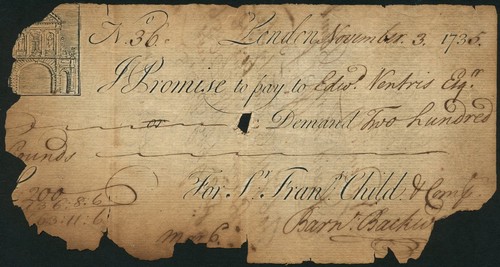 No. 36. London November. 3. 1735.
I Promise to pay to Edwd. Ventris Esqr.
or Demand Two hundred
Pounds
For Sr. Frans. Child & Comp
200
Barnd. Backw